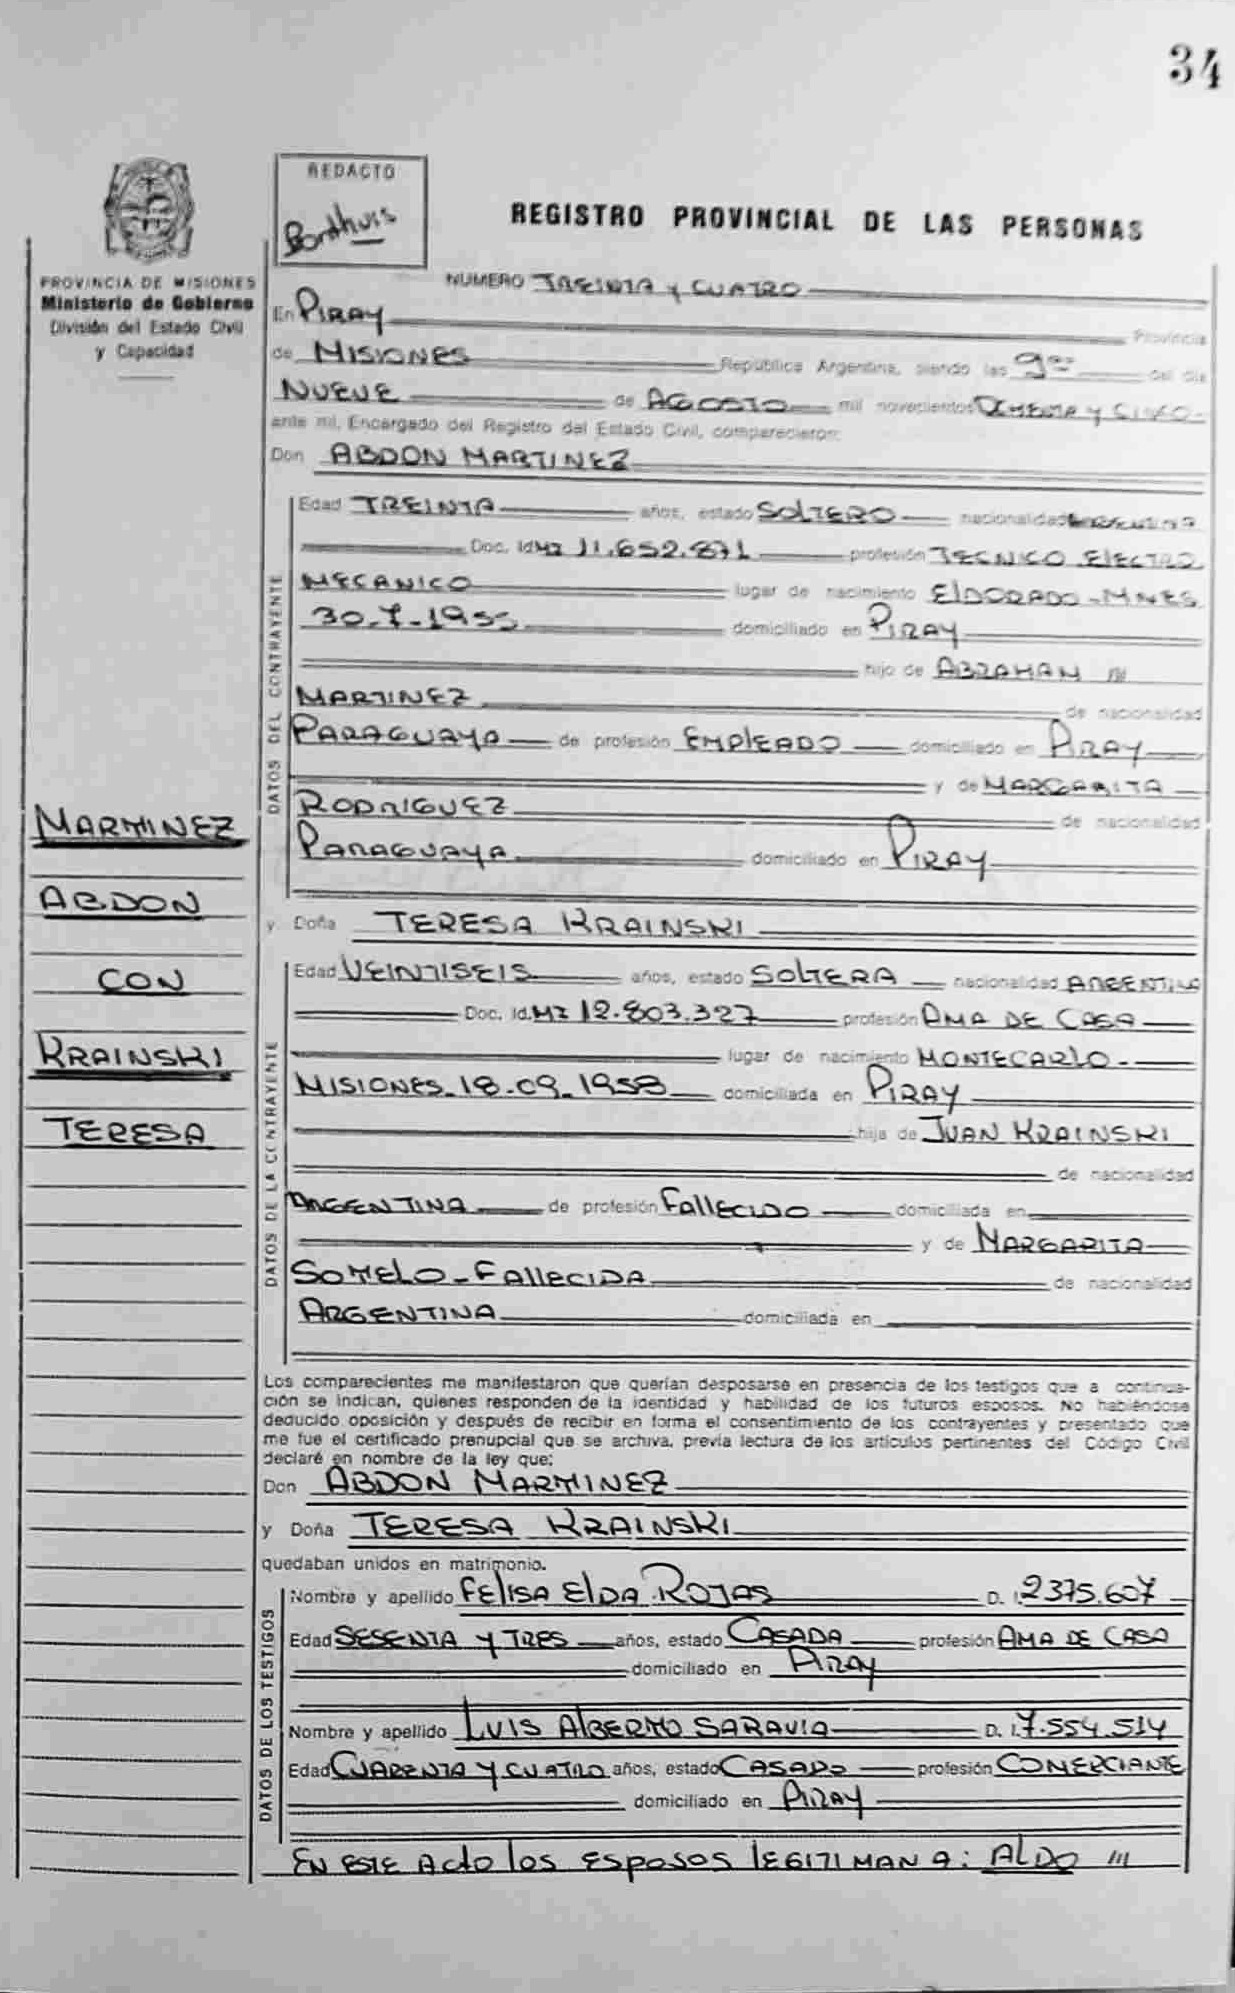 34
REDACTO
Bonthuis
REGISTRO PROVINCIAL DE LAS PERSONAS
PROVINCIA DE MISIONES
Ministerio de Gobierno
División del Estado Civil
y Capacidad
NUMERO TREINTA Y CUATRO
En PIRAY Provincia
de MISIONES República Argentina, siendo las 9 del día
NUEVE de AGOSTO mil novecientos OCHENTA Y CINCO
ante mí, Encargado del Registro del Estado Civil, comparecieron:
Don ABDON MARTINEZ
DATOS DEL CONTRAYENTE
Edad TREINTA años, estado SOLTERO nacionalidad ARGENTINA
Doc. Id. MI 11.652.871 profesión TECNICO ELECTRO
MECANICO lugar de nacimiento ElDORADO-MNES
30-7-1955 domiciliado en PIRAY
hijo de ABRAHAM ///
MARTINEZ de nacionalidad
PARAGUAYA de profesión EMPlEADO domiciliado en PIRAY
y de MARGARITA
RODRIGUEZ de nacionalidad
PARAGUAYA domiciliado en PIRAY
MARTINEZ
ABDON
CON
KRAINSKI
TERESA
y Doña TERESA KRAINSKI
DATOS DE LA CONTRAYENTE
Edad VEINTISEIS años, estado SOLTERA nacionalidad ARGENTINA
Doc. Id. MI 12.803.327 profesión AMA DE CASA
lugar de nacimiento MONTECARLO-
MISIONES-18-09-1958 domiciliada en PIRAY
hija de JUAN KRAINSKI
de nacionalidad
ARGENTINA de profesión FAllECIDO domiciliada en
y de MARGARITA
SOTELO-FAllECIDA de nacionalidad
ARGENTINA domiciliada en
Los comparecientes me manifestaron que querían desposarse en presencia de los testigos que a continua-
ción se indican, quienes responden de la identidad y habilidad de los futuros esposos. No habiéndose
deducido oposición y después de recibir en forma el consentimiento de los contrayentes y presentado que
me fue el certificado prenupcial que se archiva, previa lectura de los artículos pertinentes del Código Civil
declaré en nombre de la ley que:
Don ABDON MARTINEZ
y Doña TERESA KRAINSKI
quedaban unidos en matrimonio.
DATOS DE LOS TESTIGOS
Nombre y apellido FElISA ElDA ROJAS D. I. 2375.607
Edad SESENTA Y TRES años, estado CASADA profesión AMA DE CASA
domiciliado en PIRAY
Nombre y apellido LUIS AlBERTO SARAVIA D. I. 7.554.514
Edad CUARENTA Y CUATRO años, estado CASADO profesión COMERCIANTE
domiciliado en PIRAY
EN ESTE Acto los Esposos lEGITIMAN A: AlDO ///